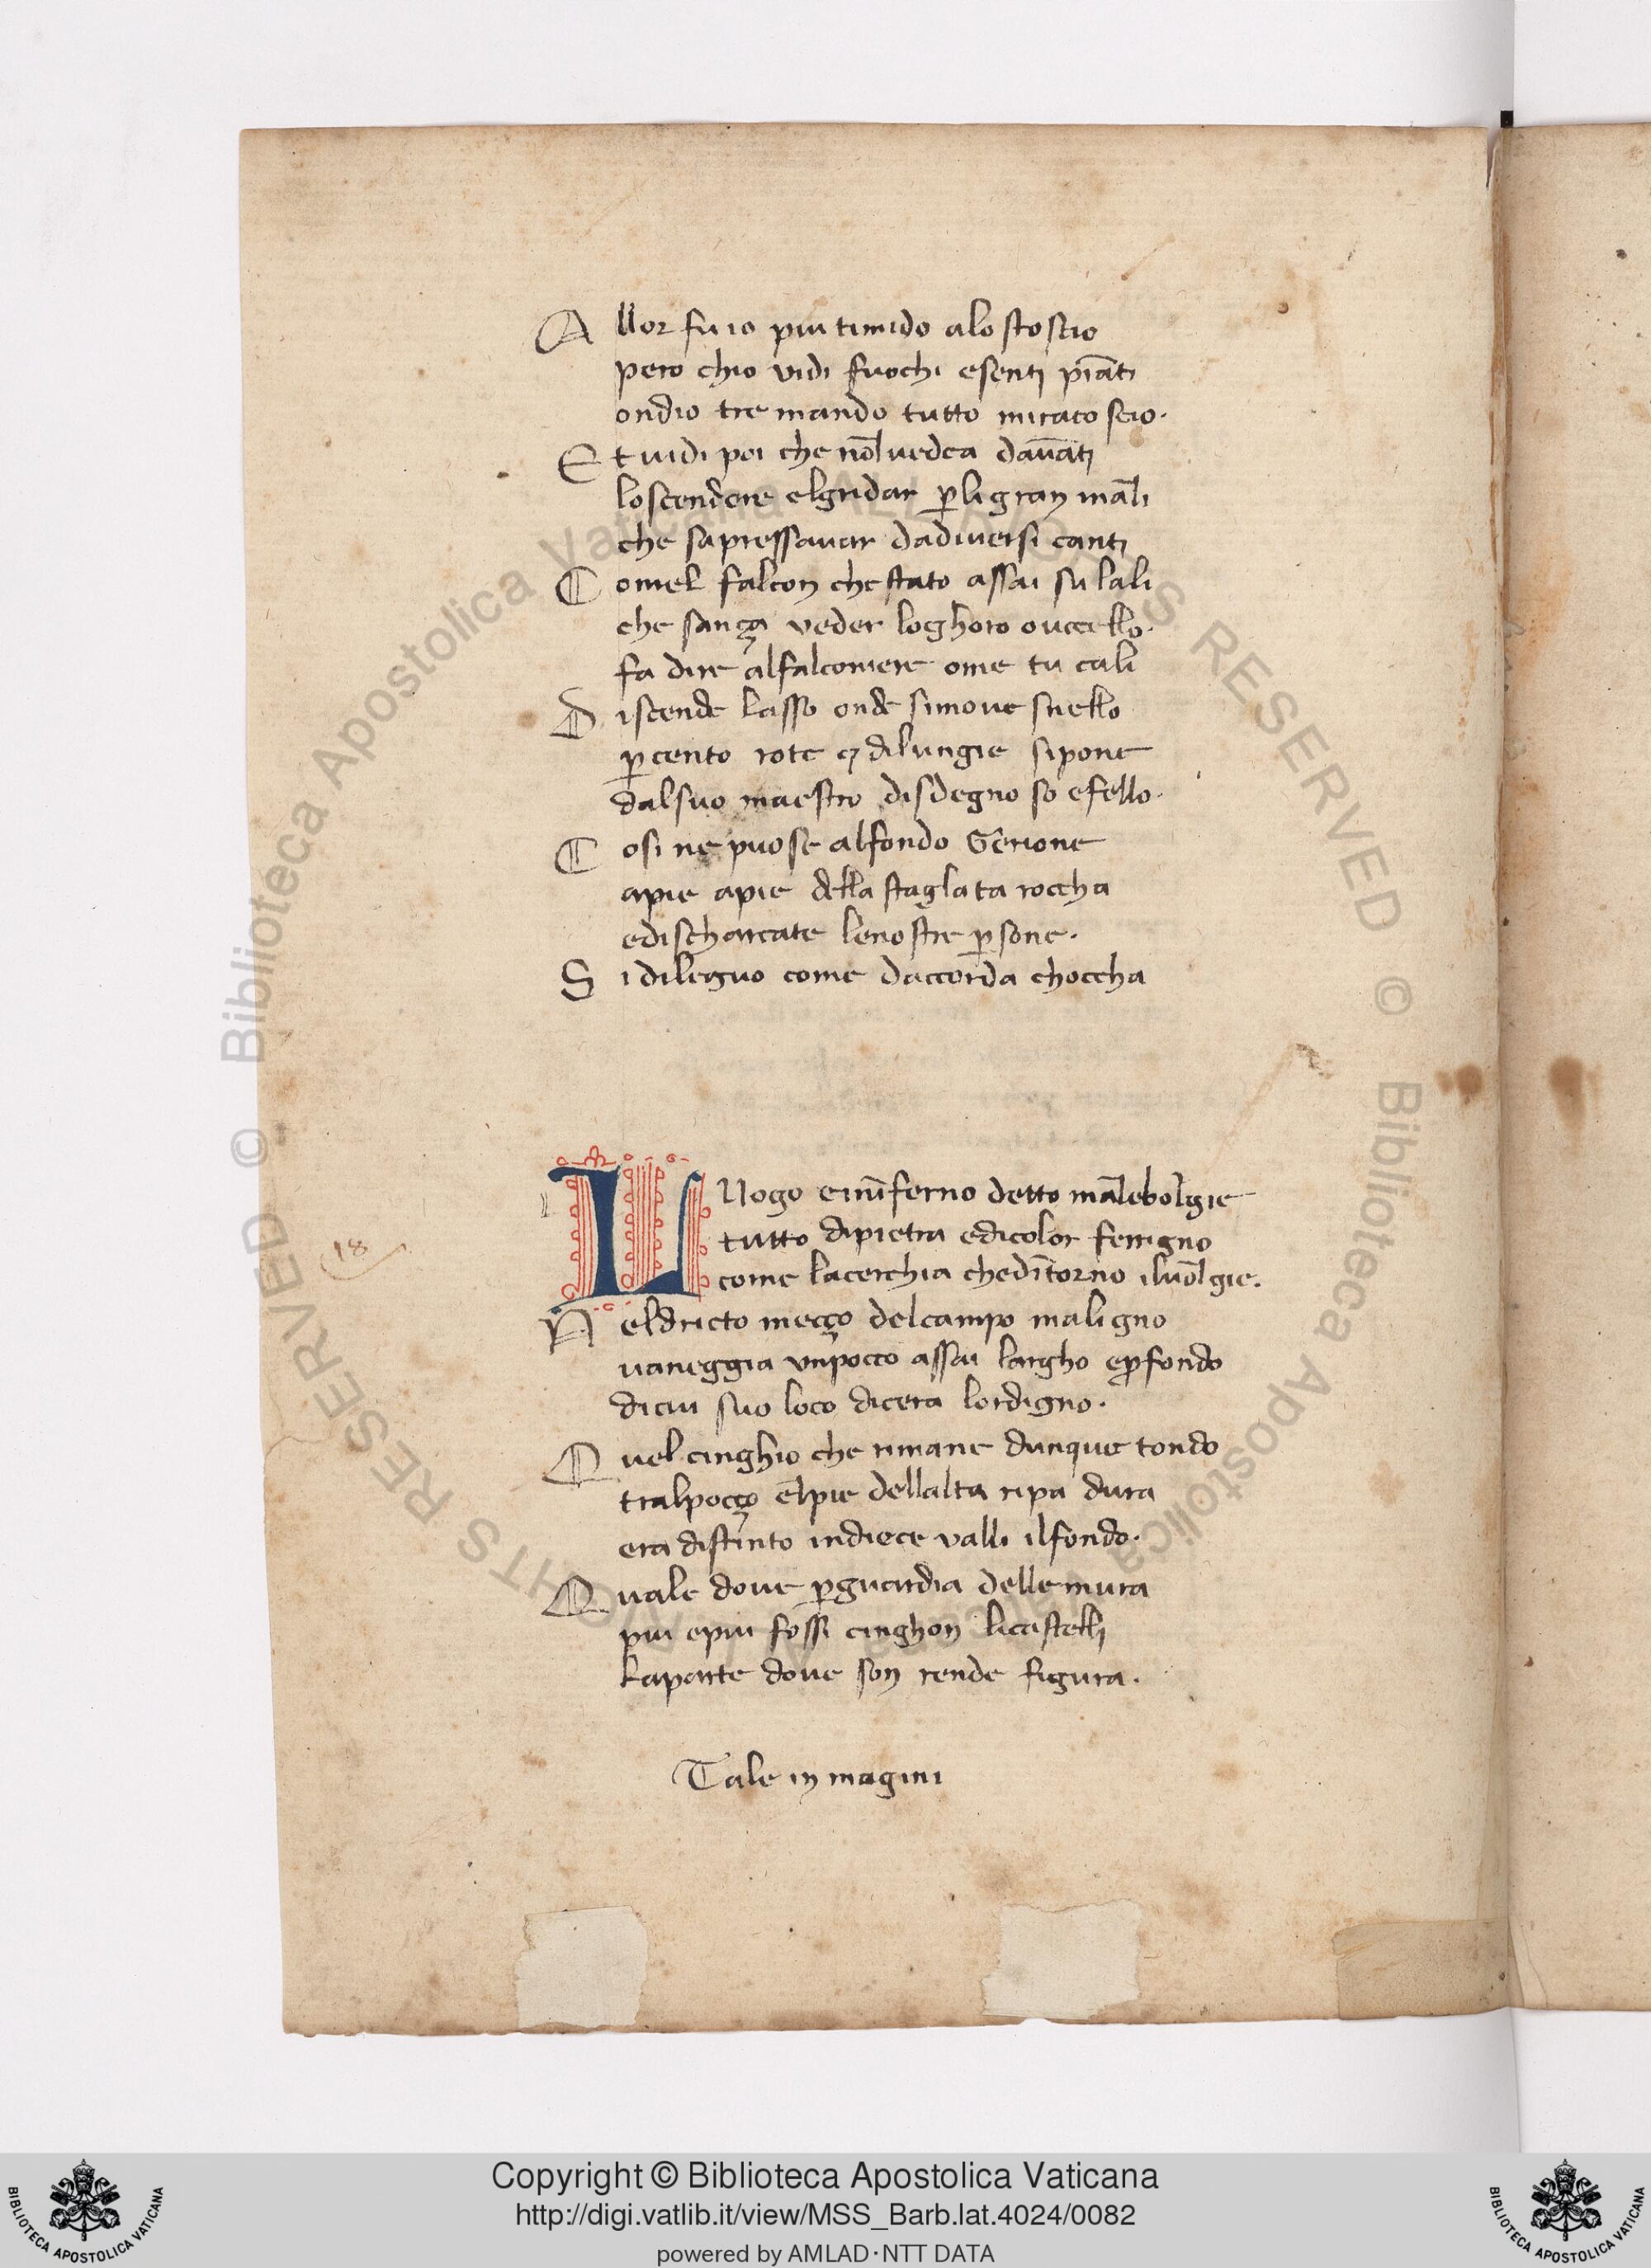 A llor fu io piu timido alo stoscio
pero chio vidi fuochi esentj piātj
ondio tre mando tutto miracoscio.
E t uidi poi che nōl uedea dauātj
loscendere elgridar ꝑligran mali
che sapressauar dadiuersi cantj
C omel falcon chestato assai su lali
che sança veder loghoro ouccello.
fa dire alfalconiere ome tu cali
D iscende lasso onde simoue snello
ꝑcento rote ⁊ dilungie sipone
dalsuo maestro disdegnoso efello.
C osi ne puose alfondo Gerione
apie apie della staglata roccha
edischarcate lenostre ꝑsone.
S i dileguo come daccorda choccha
L Vogo e inīferno detto malebolgie
tutto dipietra edicolor ferrigno
come lacerchia chedītorno iluolgie.
18
N eldricto meçço delcampo maligno
uaneggia vnpocco assai largho eꝓfondo
dicui suo loco dicera lordigno.
Q uel cinghio che rimane dunque tondo
tralpoçço elpie dellalta ripa dura
era distinto indiece valli ilfondo.
Q uale doue ꝑguardia delle mura
piu epiu fossi cinghon licastellj
laparte doue son rende figura.
Tale in magini
© Biblioteca Apostolica Vaticana ALL RIGHTS RESERVED © Biblioteca Apostolica Vaticana ALL RIGHTS RESERVED
Copyright © Biblioteca Apostolica Vaticana
http://digi.vatlib.it/view/MSS_Barb.lat.4024/0082
powered by AMLAD·NTT DATA
BIBLIOTECA APOSTOLICA VATICANA
BIBLIOTECA APOSTOLICA VATICANA